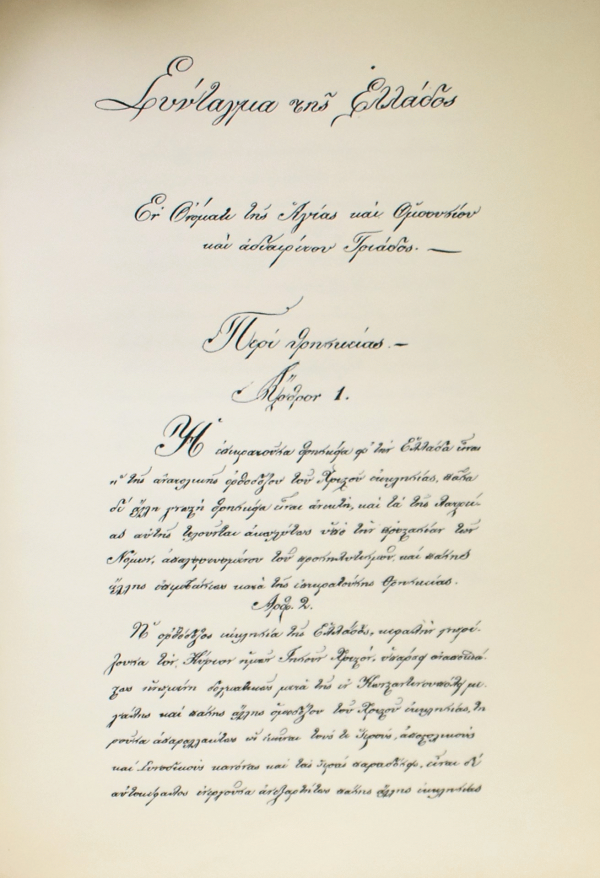 Σύνταγμα τῆς Ἑλλάδος
Ἐν Ὀνόματι τῆς Ἁγίας καὶ Ὁμοουσίου
καὶ ἀδιαιρέτου Τριάδος. —
Περὶ θρησκείας. —
Ἄρθρον 1.
Ἡ ἐπικρατοῦσα θρησκεία εἰς τὴν Ἑλλάδα εἶναι
ἡ τῆς ἀνατολικῆς ὀρθοδόξου τοῦ Χριστοῦ ἐκκλησίας, πᾶσα
δὲ ἄλλη γνωστὴ θρησκεία εἶναι ἀνεκτή, καὶ τὰ τῆς λατρεί-
ας αὐτῆς τελοῦνται ἀκωλύτως ὑπὸ τὴν προστασίαν τῶν
Νόμων, ἀπαγορευομένου τοῦ προσηλυτισμοῦ, καὶ πάσης
ἄλλης ἐπεμβάσεως κατὰ τῆς ἐπικρατούσης θρησκείας.
Ἄρθρ. 2.
Ἡ ὀρθόδοξος ἐκκλησία τῆς Ἑλλάδος, κεφαλὴν γνωρί-
ζουσα τὸν Κύριον ἡμῶν Ἰησοῦν Χριστόν, ὑπάρχει ἀναποσπά-
στως ἡνωμένη δογματικῶς μετὰ τῆς ἐν Κωνσταντινουπόλει με-
γάλης καὶ πάσης ἄλλης ὁμοδόξου τοῦ Χριστοῦ ἐκκλησίας, τη-
ροῦσα ἀπαραλλάκτως ὡς ἐκεῖναι τούς τε ἱερούς, ἀποστολικοὺς
καὶ Συνοδικοὺς κανόνας καὶ τὰς ἱερὰς παραδόσεις, εἶναι δὲ
αὐτοκέφαλος ἐνεργοῦσα ἀνεξαρτήτως πάσης ἄλλης ἐκκλησίας